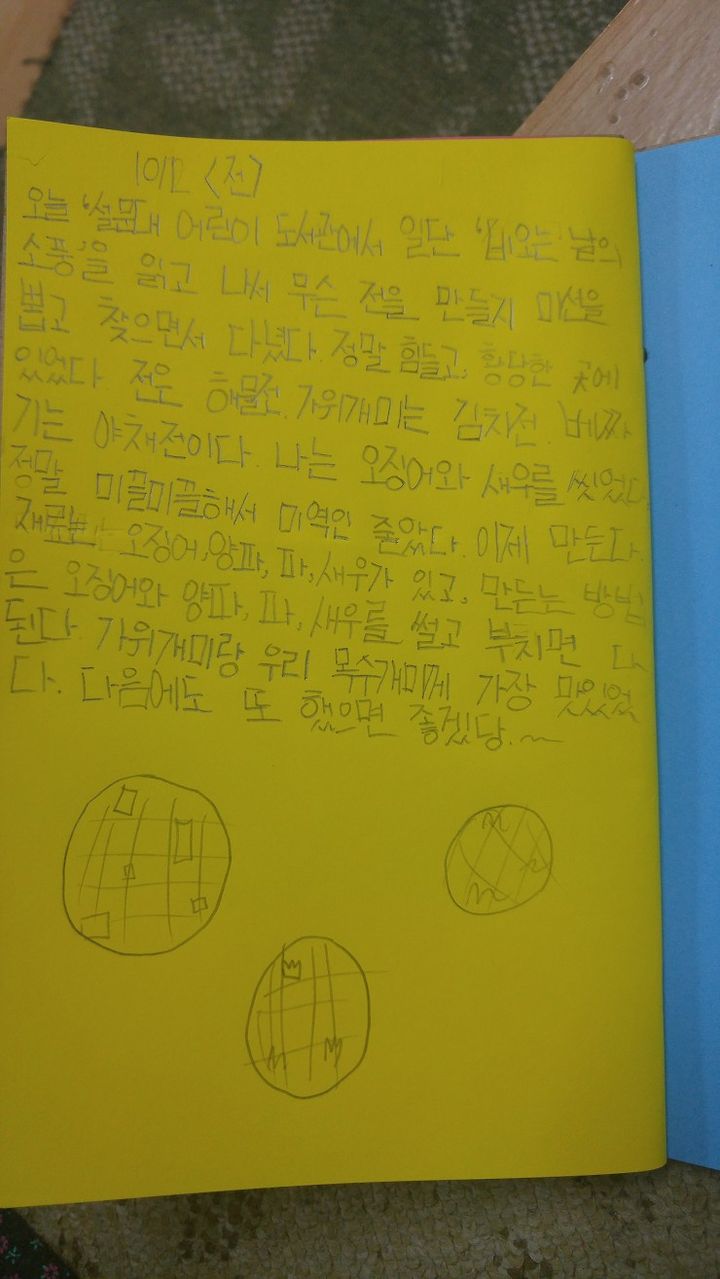 10/12 <전>
오늘 '설문대 어린이 도서관에서 일단 '비오는 날의
소풍'을 읽고 나서 무슨 전을 만들지 미션을
뽑고 찾으면서 다녔다. 정말 힘들고, 황당한 곳에
있었다. 전은 해물전. 가위개미는 김치전. 베짜
기는 야채전이다. 나는 오징어와 새우를 씻었다.
정말 미끌미끌해서 미역인 줄았았다. 이제 만든다.
재료는 오징어, 양파, 파, 새우가 있고, 만드는 방법
은 오징어와 양파, 파, 새우를 썰고 부치면 다
된다. 가위개미랑 우리 목수개미께 가장 맛있었
다. 다음에도 또 했으면 좋겠당.~